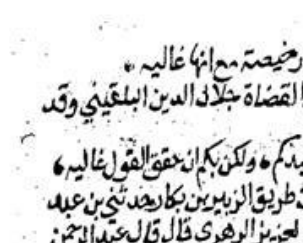 رخيصة مع انها غاليه
القضاة جلال الدين البلقيني وقد
ولكن بكم ان حقق القول غاليه
طريق الزبير بن بكار حدثني بن عبد
العزيز الزهري قال قال عبد الرحمن